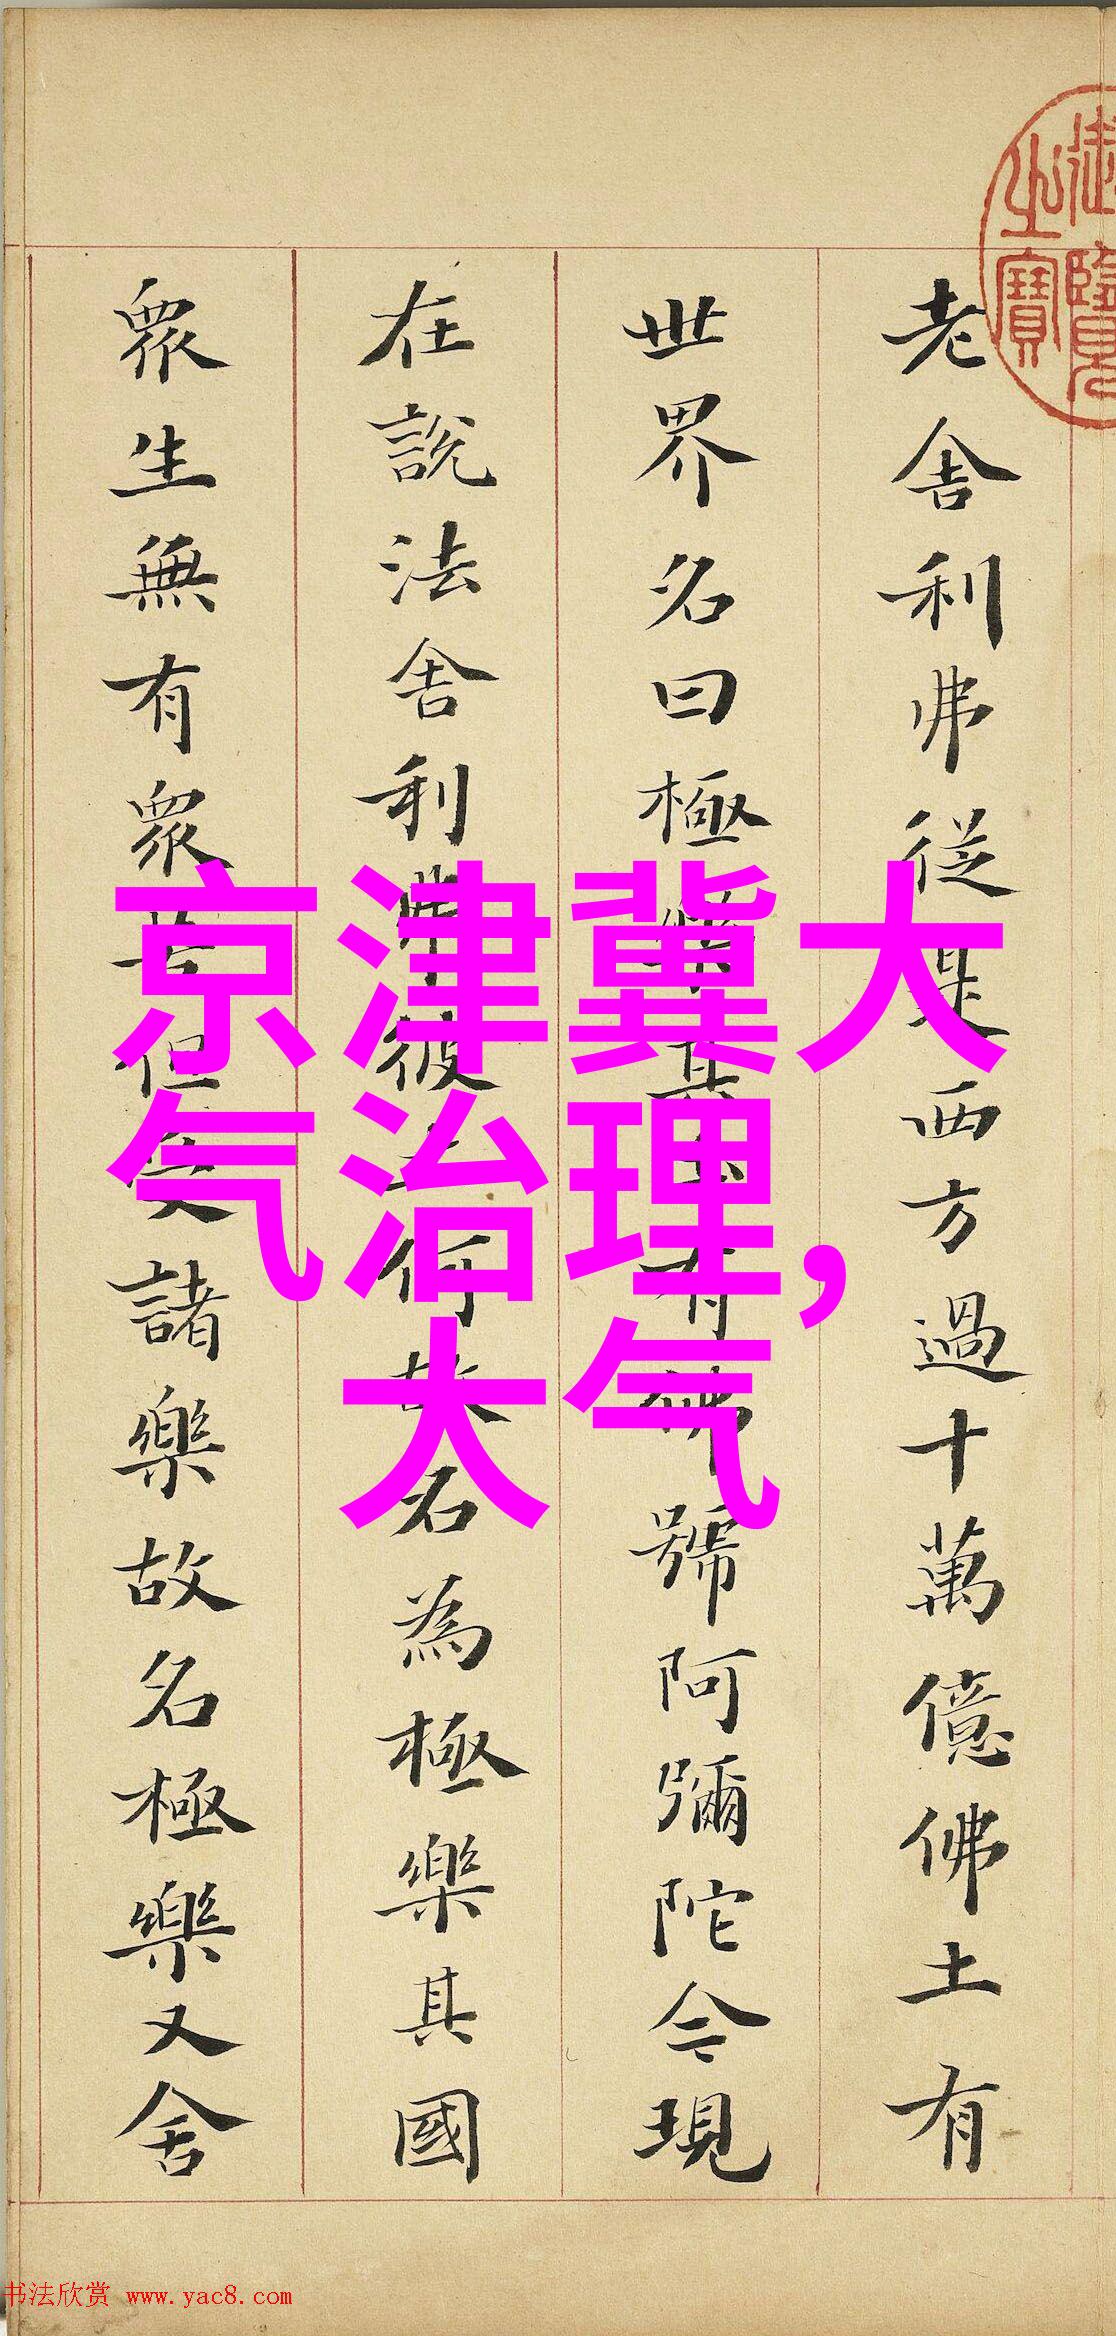 御覽
之寶
老舍利弗從是西方過十萬億佛土有
世界名曰極樂其土有佛號阿彌陀今現
在說法舍利弗彼土何故名為極樂其國
眾生無有眾苦但受諸樂故名極樂又舍
京津冀大
气治理,
大气
书法欣赏 www.yac8.com